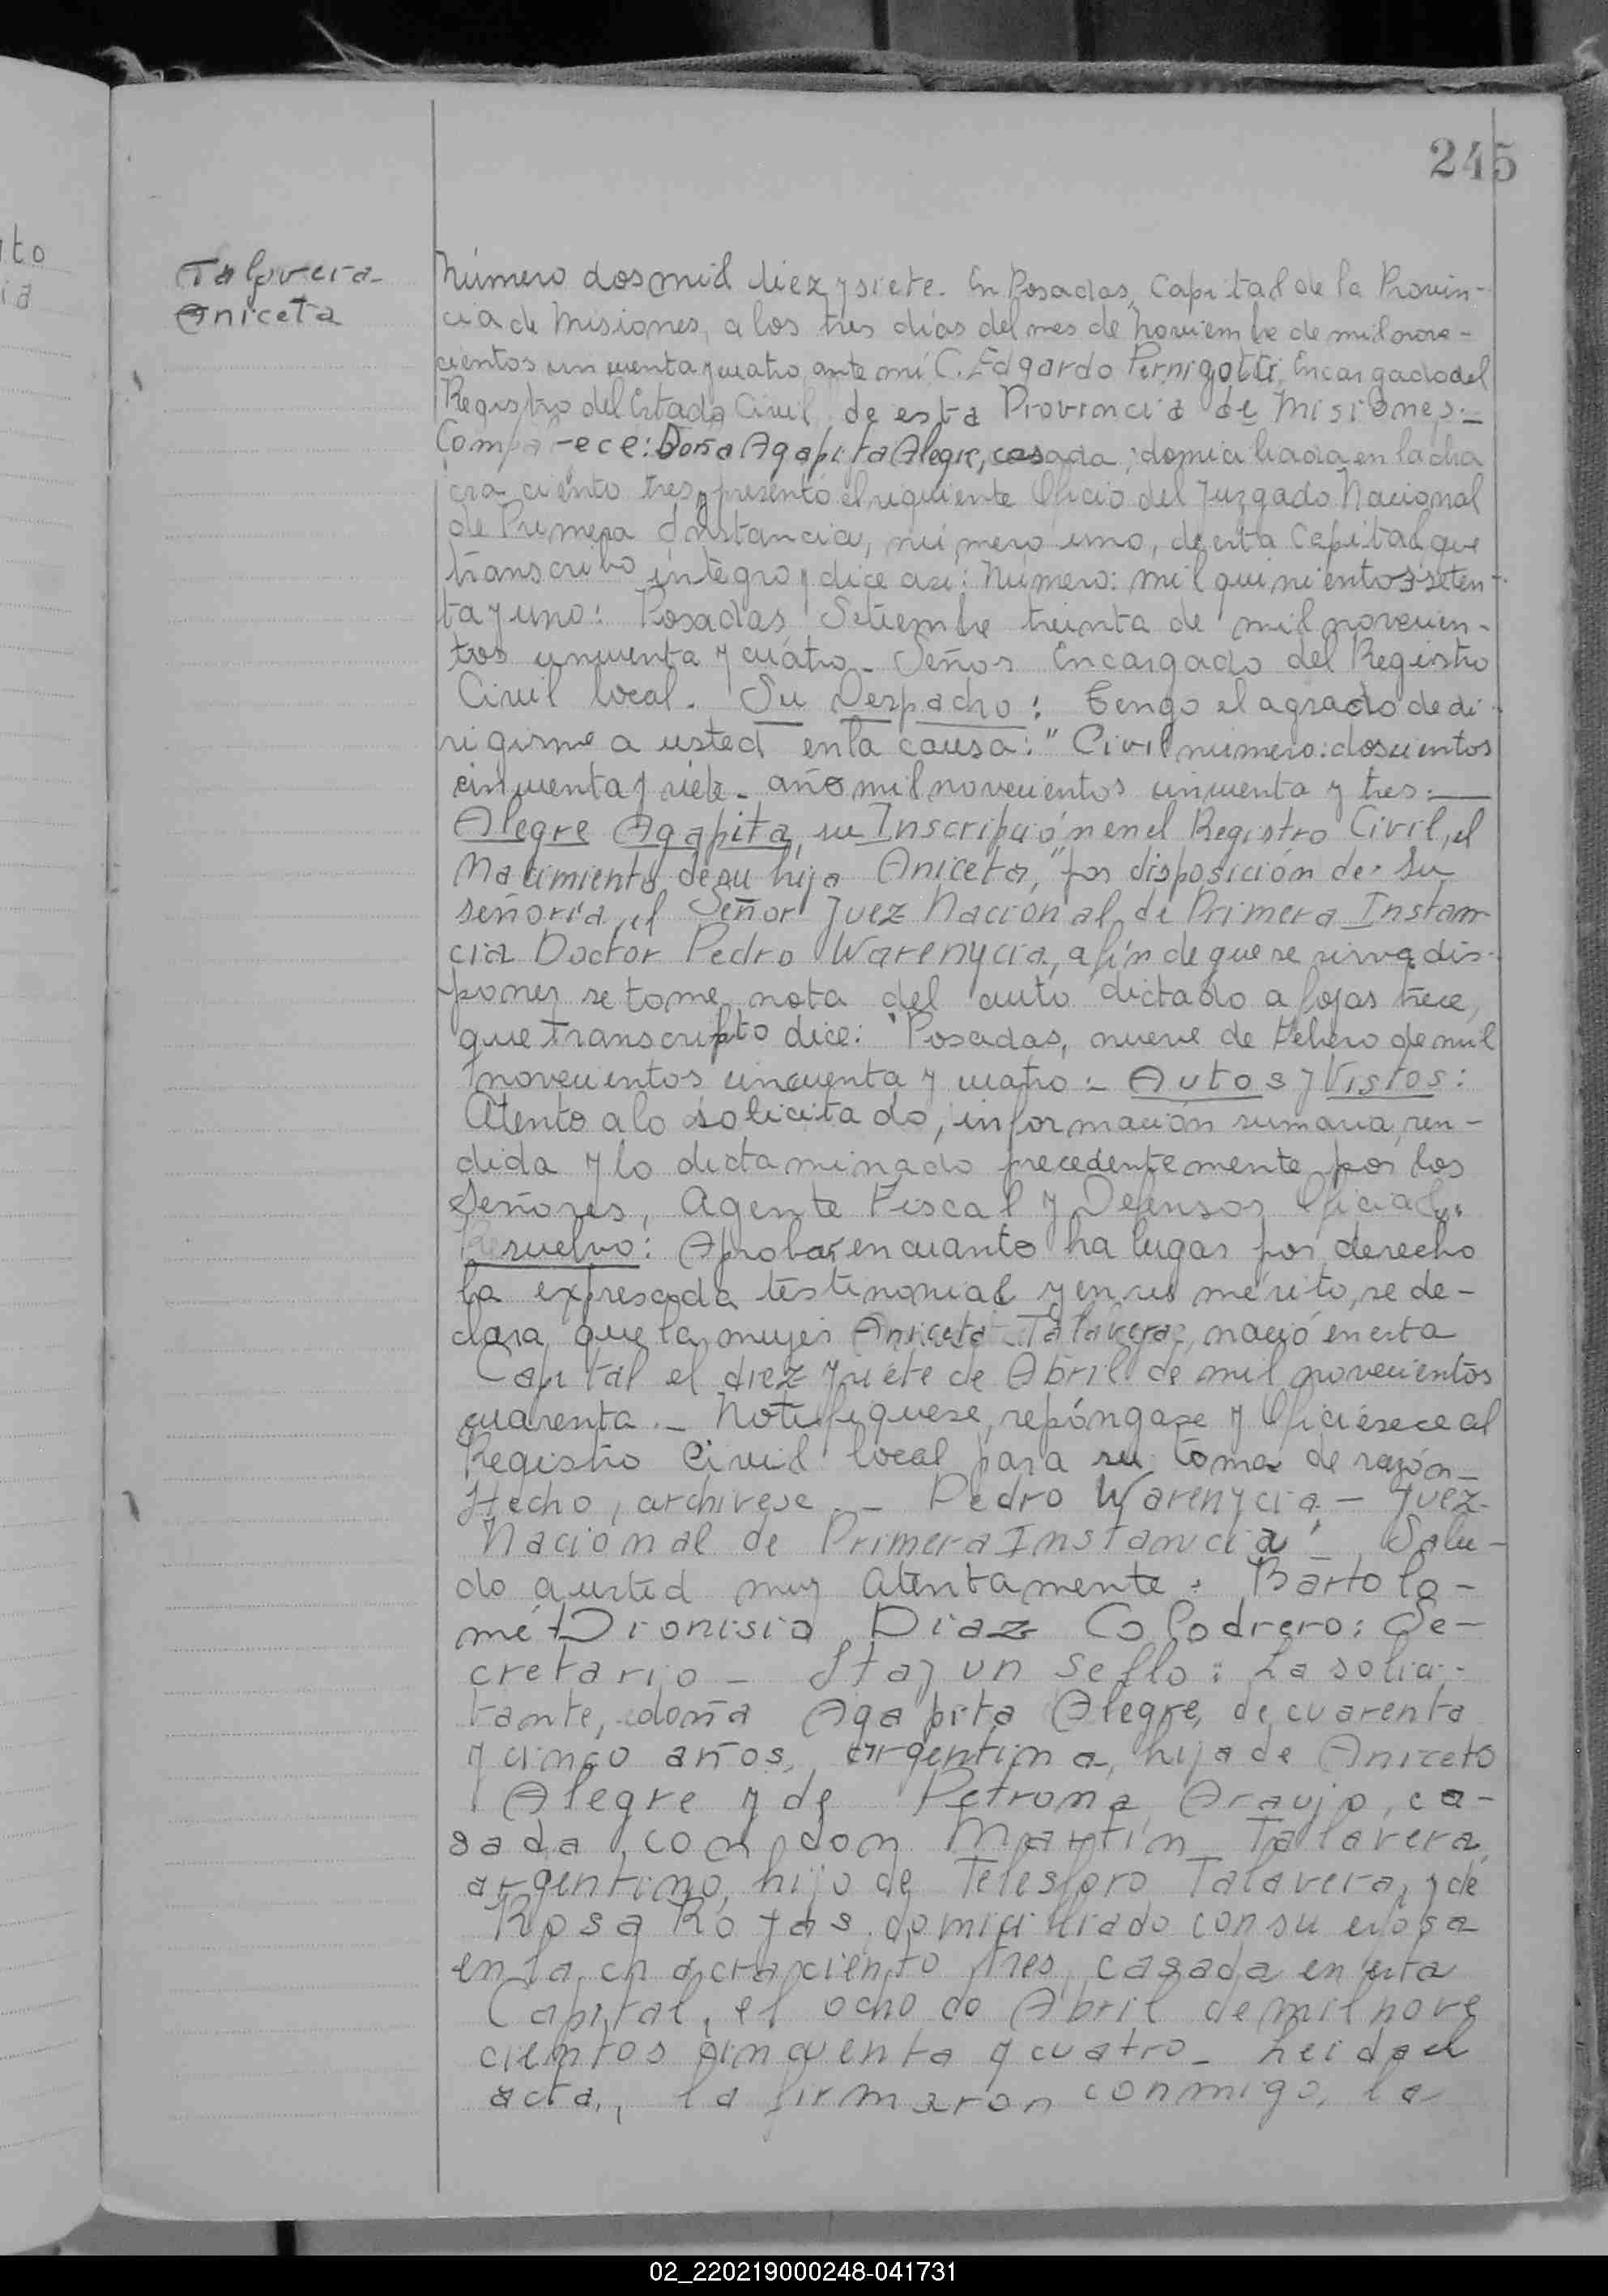 245
Talavera
Aniceta
Número dos mil diez y siete. En Posadas, Capital de la Provin-
cia de Misiones, a los tres días del mes de Noviembre de mil nove-
cientos cincuenta y cuatro, ante mí C. Edgardo Pernigotti, Encargado del
Registro del Estado Civil, de esta Provincia de Misiones.-
Comparece: Doña Agapita Alegre, casada, domiciliada en la cha
cra ciento tres, presentó el siguiente Oficio del Juzgado Nacional
de Primera Instancia, número uno, de esta Capital que
transcribo íntegro y dice así: Número: mil quinientos seten-
ta y uno: Posadas, Setiembre treinta de mil novecien-
tos cincuenta y cuatro - Señor Encargado del Registro
Civil local. Su Despacho: Tengo el agrado de di-
rigirme a usted en la causa: "Civil número: doscientos
cincuenta y siete - año mil novecientos cincuenta y tres.-
Alegre Agapita, su Inscripción en el Registro Civil, el
Nacimiento de su hija Aniceta," por disposición de su
señoría, el Señor Juez Nacional de Primera Instan-
cia Doctor Pedro Warenycia, a fin de que se sirva dis-
poner se tome nota del auto dictado a fojas trece,
que transcripto dice: "Posadas, nueve de Febrero de mil
novecientos cincuenta y cuatro:- Autos y Vistos:
Atento a lo solicitado, información sumaria, ren-
dida y lo dictaminado precedentemente por los
Señores, Agente Fiscal y Defensor Oficial,
Resuelvo: Aprobar, en cuanto ha lugar por derecho
la expresada testimonial y en su mérito, se de-
clara que la mujer Aniceta Talavera, nació en esta
Capital el diez y siete de Abril de mil novecientos
cuarenta.- Notifíquese, repóngase y Ofíciesece al
Registro Civil local para su toma de razón-
Hecho, archívese.- Pedro Warenycia - Juez
Nacional de Primera Instancia" - Salu-
do a usted muy atentamente: Bartolo-
mé Dionisio Diaz Colodrero: Se-
cretario - Hay un sello: La solici-
tante, doña Agapita Alegre, de cuarenta
y cinco años, argentina, hija de Aniceto
Alegre y de Petrona Araujo, ca-
sada con don Martín Talavera,
argentino, hijo de Telesforo Talavera, y de
Rosa Rojas, domiciliado con su esposa
en la chacra ciento tres, casada en esta
Capital, el ocho de Abril de mil nove
cientos cincuenta y cuatro - Leida el
acta, la firmaron conmigo, la
02_220219000248-041731